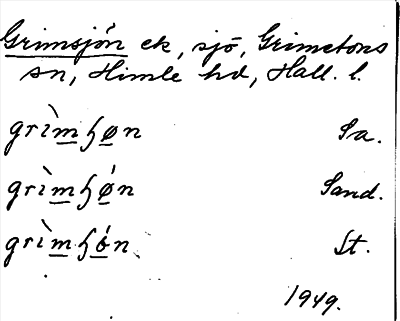 Grimsjön ek, sjö, Grimetons
sn, Himle hd, Hall. l.
grìmʃøn Sa.
grìmʃǿn Sand.
grìmʃǿn St.
1949.